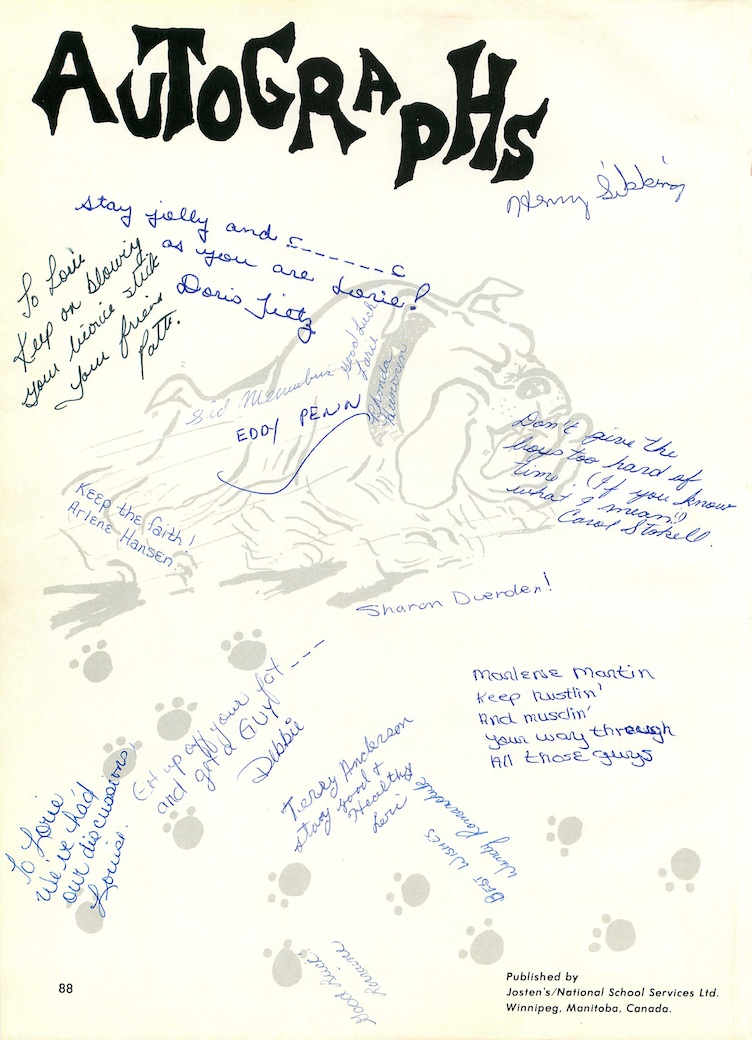 AUTOGRAPHS
Henry Sibbing
stay jolly and s------s
as you are Lorie!
Doris Tietz
To Lorie
Keep on blowing
your licorice stick
your friend
Patti.
Good Luck
Lorie
Rhonda
Sid
EDDY PENN
Don't give the
boys too hard of
time. (If you know
what I mean!)
Carol Stokell.
Keep the faith!
Arlene Hansen.
Sharon Duerden!
Marlene Martin
Keep hustlin'
And musclin'
your way through
All those guys
up off your fat ---
and get a GUY
Debbie
Terry Anderson
stay good &
Healthy
Lori
To Lorie
We've had
our discussions,
Louise.
BEST WISHES
Wendy
Good Luck!
Lorraine
88
Published by
Josten's/National School Services Ltd.
Winnipeg, Manitoba, Canada.